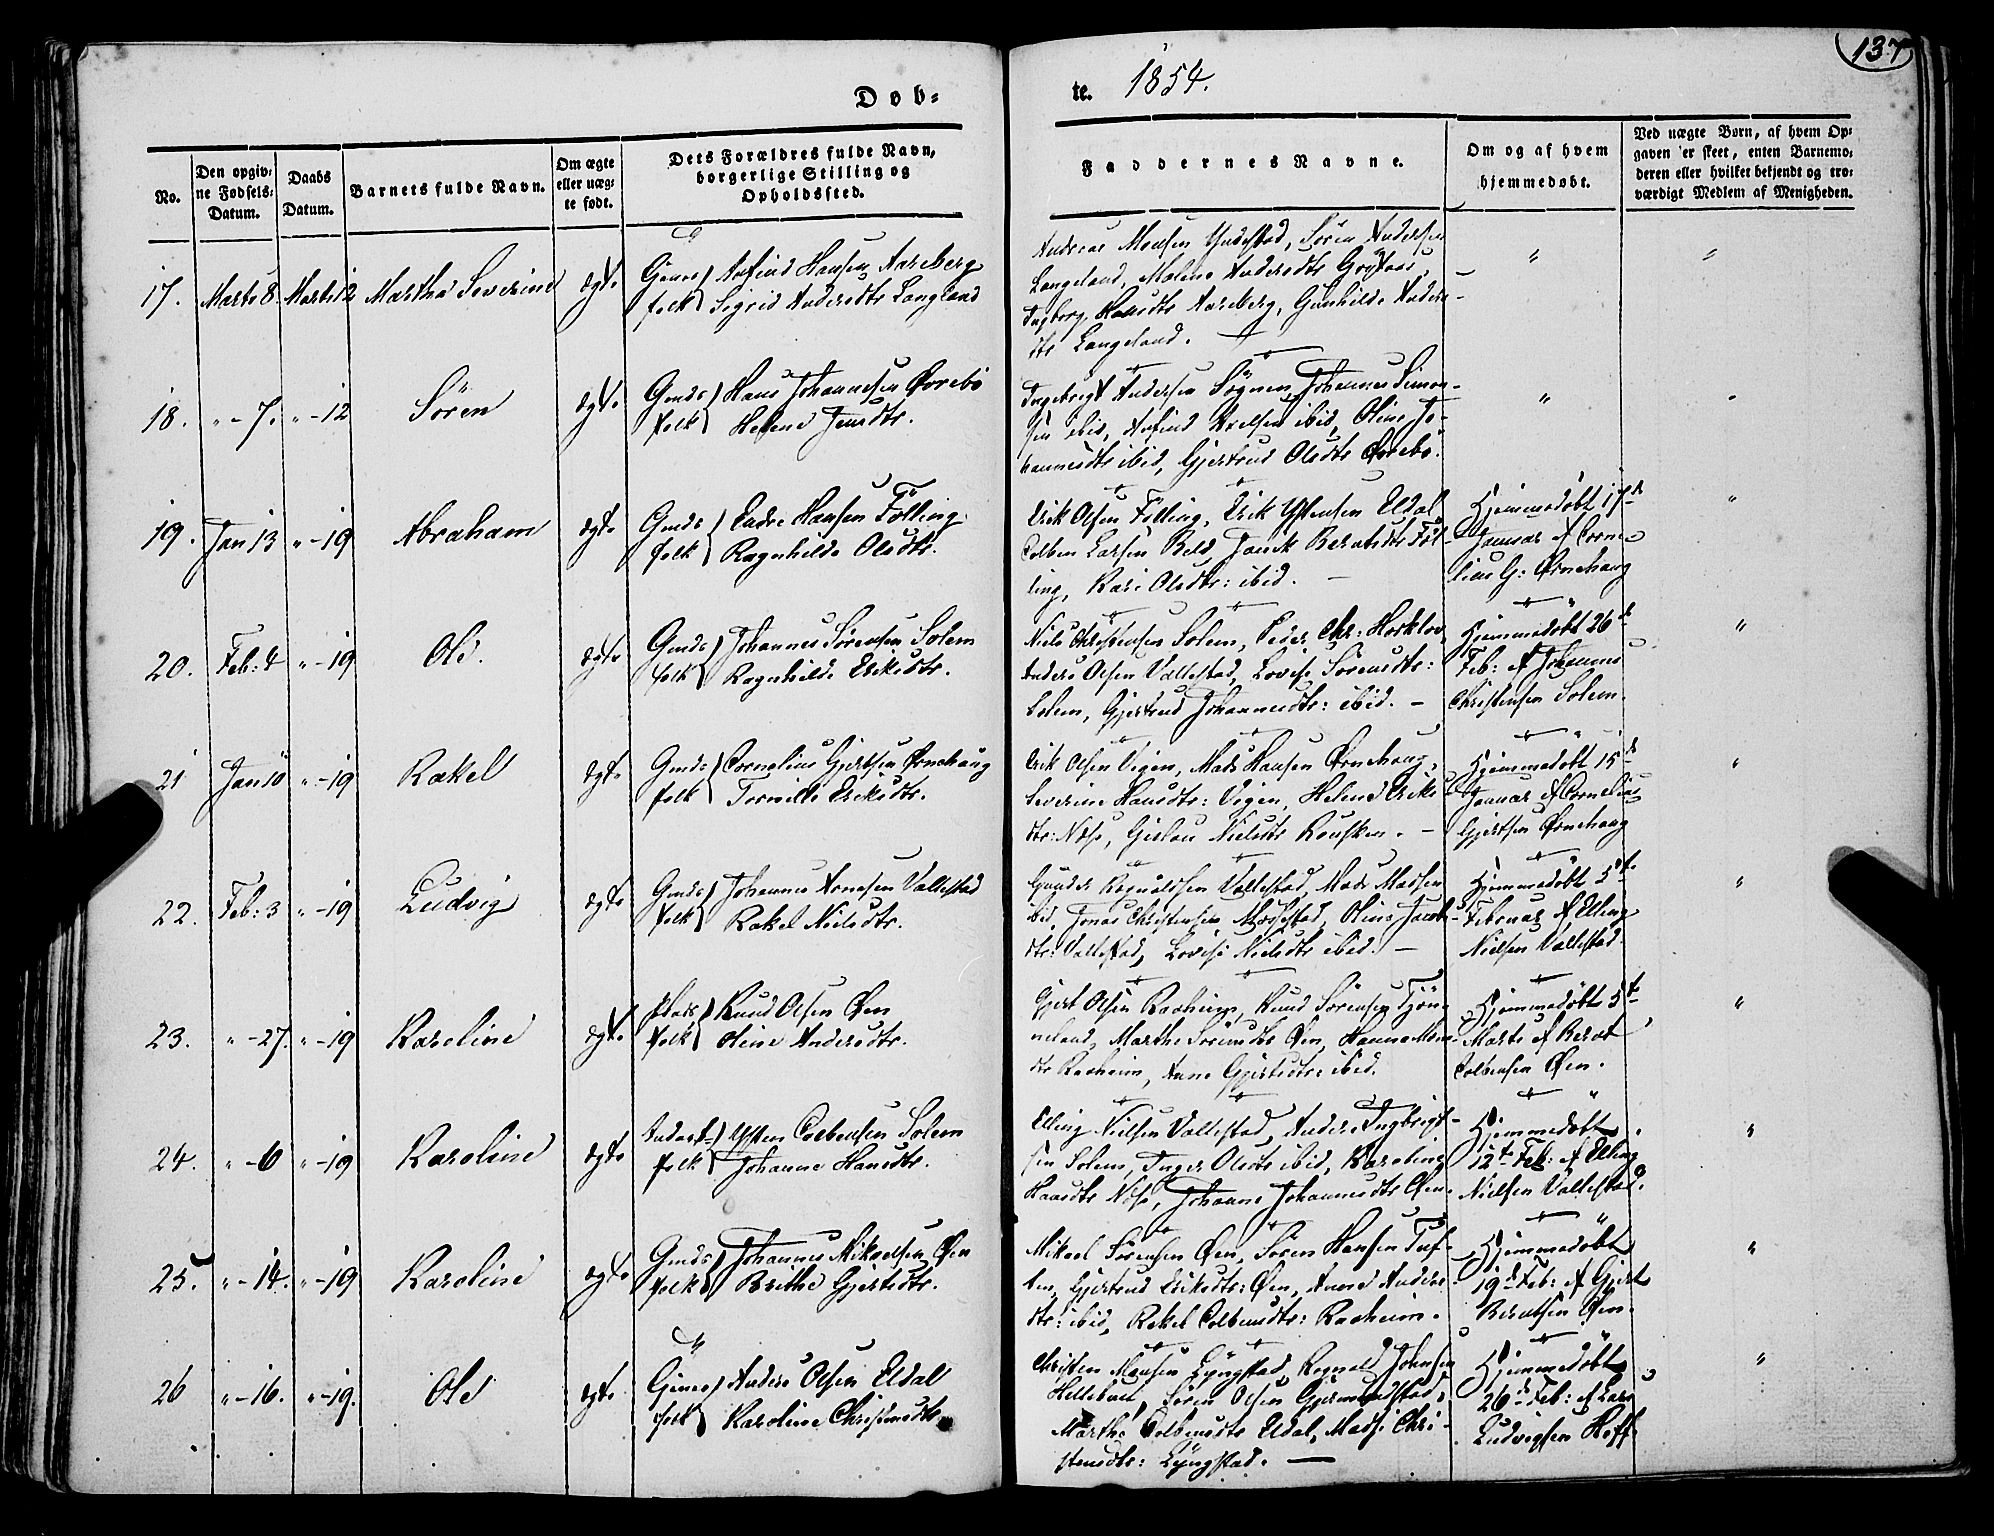 137
Døb-
te. 1854.
No.
Den opgiv-
ne Fødsels-
Datum.
Daabs
Datum.
Barnets fulde Navn.
Om ægte
eller uæg-
te født.
Dets Forældres fulde Navn,
borgerlige Stilling og
Opholdssted.
Faddernes Navne.
Om og af hvem
hjemmedøbt.
Ved uægte Børn, af hvem Op-
gaven er skeet, enten Barnemo-
deren eller hvilket bekjendt og tro-
værdigt Medlem af Menigheden.
17. Marts 8. Marts 12 Martha Severine ægte
Arfind Hansen Aareberg
folk Sigrid Andersdtr Langeland
Andreas Monsen Yndestad, Sören Andersen
Langeland, Malene Andersdtr
Ingborg Hansdtr Aareberg, Gunhilde Anders-
dtr Langeland.
18. " - 7. " - 12 Sören ægte
Gmds Hans Johannesen Ørrebö
folk Helene Jensdtr.
Ingebrigt Andersen Sögnen, Johannes Simon-
sen ibid, Arfind ibid, Oline Jo-
hannesdtr ibid, Gjertrud Olsdtr Ørrebö.
19. Jan 13 " - 19 Abraham ægte
Gmds Endre Hansen Fölling
folk Ragnhilde Olsdtr.
Erik Olsen Fölling, Erik Ystensen Eldal
Colben Larsen Beld, Berentsdtr Föl-
ling, Kari Olsdtr: ibid. -
Hjemmedöbt 17de
Januar af Corne-
lius G: Ørnehaug
20. Feb: 4 " - 19 Ole. ægte
Gmds Johannes Sörensen Solem
folk Ragnhilde Eriksdtr.
Niels Christensen Solem, Peder Chr: Horklov
Anders Olsen Vallestad, Lovise Sörensdtr:
Solem, Gjertrud Johannesdtr: ibid. -
Hjemmedöbt 26de
Feb: af Johannes
Christensen Solem.
21 Jan 10 " - 19 Rakel ægte
Gmds Cornelius Gjertsen Ørnehaug
folk Tornille Eriksdtr.
Erik Olsen Vigen, Mads Hansen Ørnehaug,
Severine Hansdtr: Vigen, Helene Eriks
dtr: Næse, Gislau Nielsdtr -
Hjemmedöbt 15de
Januar af Cornelius
Gjertsen Ørnehaug
22. Feb: 3 " - 19 Ludvig ægte
Gmds Johannes Arnesen Vallestad
folk Rakel Nielsdtr.
Gunder Rognaldsen Vallestad, Mads Madsen
ibid, Jonas Christensen Oline Jacobs-
dtr: Vallestad, Lovise Nielsdtr ibid. -
Hjemmedöbt 5te
Februar af Elling
Nielsen Vallestad.
23. " - 27. " - 19 Karoline ægte
Plads Knud Olsen Øen
folk Oline Andersdtr.
Gjert Olsen Raaheim, Knud Sörensen Tjön-
neland, Marthe Sörensdtr Øen, Hanne Mons-
dtr Raaheim, Anne Gjertsdtr: ibid.
Hjemmedöbt 5te
Marts af Berent
Colbensen Øen.
24. " - 6 " - 19 Karoline ægte
Inderst- Ysten Colbensen Solem
folk Johanne Hansdtr.
Elling Nielsen Vallestad, Anders Ingbrigt-
sen Solem, Inger Olsdtr ibid, Karoline
Hansdtr Næse, Johanne Johannesdtr Øen.
Hjemmedöbt
12te Feb: af Elling
Nielsen Vallestad.
25. " - 14. " - 19 Karoline ægte
Gmds Johannes Mikaelsen Øen
folk Brithe Gjertsdtr.
Mikael Sörensen Øen, Sören Hansen Tuf-
ten, Gjertrud Eriksdtr: Øen, Anne Anders-
dtr: ibid, Rakel Colbensdtr: Raaheim.
Hjemmedöbt
19de Feb: af Gjert
Berentsen Øen.
26 " - 16. " - 19. Ole ægte
Anders Olsen Eldal
folk Karoline Christensdtr
Christen Monsen Lyngstad, Rognald Johnsen
Hellebust, Sören Olsen Gjermundstad,
Marthe Colbensdtr Eldal, Madsi Chri-
stensdtr: Lyngstad. -
Hjemmedöbt
26de Feb: af Lars
Ludvigsen Hoff